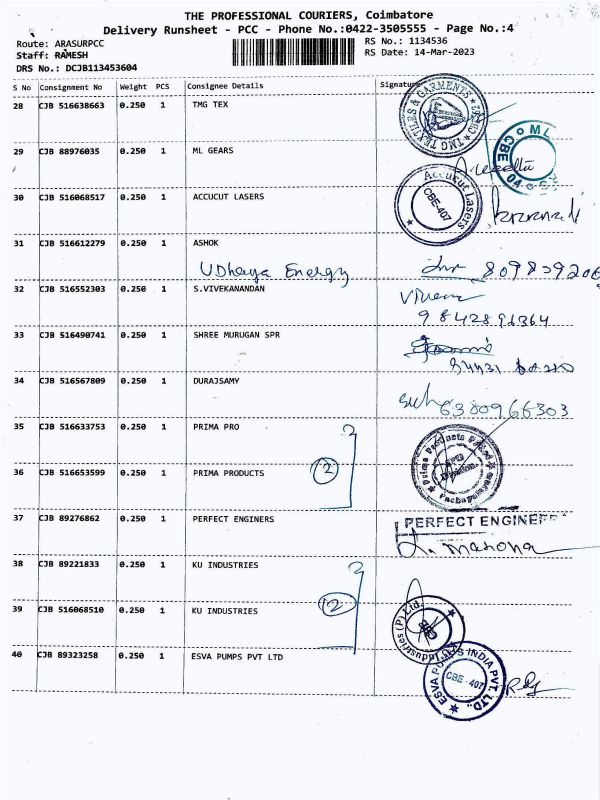 THE PROFESSIONAL COURIERS, Coimbatore
Delivery Runsheet - PCC - Phone No.:0422-3505555 - Page No.:4
Route: ARASURPCC
RS No.: 1134536
Staff: RAMESH
RS Date: 14-Mar-2023
DRS No.: DCJB113453604
S No Consignment No Weight PCS Consignee Details Signature
28 CJB 516638663 0.250 1 TMG TEX
TMG TEXTILES & GARMENTS
29 CJB 88976035 0.250 1 ML GEARS
ML
CBE
30 CJB 516068517 0.250 1 ACCUCUT LASERS
Accucut Lasers
CBE-407
31 CJB 516612279 0.250 1 ASHOK
UDhaya Energy
32 CJB 516552303 0.250 1 S.VIVEKANANDAN
33 CJB 516490741 0.250 1 SHREE MURUGAN SPR
34 CJB 516567809 0.250 1 DURAJSAMY
6380966303
35 CJB 516633753 0.250 1 PRIMA PRO
36 CJB 516653599 0.250 1 PRIMA PRODUCTS
2
Prima Products
37 CJB 89276862 0.250 1 PERFECT ENGINERS
PERFECT ENGINEE
38 CJB 89221833 0.250 1 KU INDUSTRIES
39 CJB 516068510 0.250 1 KU INDUSTRIES
2
40 CJB 89323258 0.250 1 ESVA PUMPS PVT LTD
ESVA PUMPS INDIA PVT. LTD.,
CBE - 407